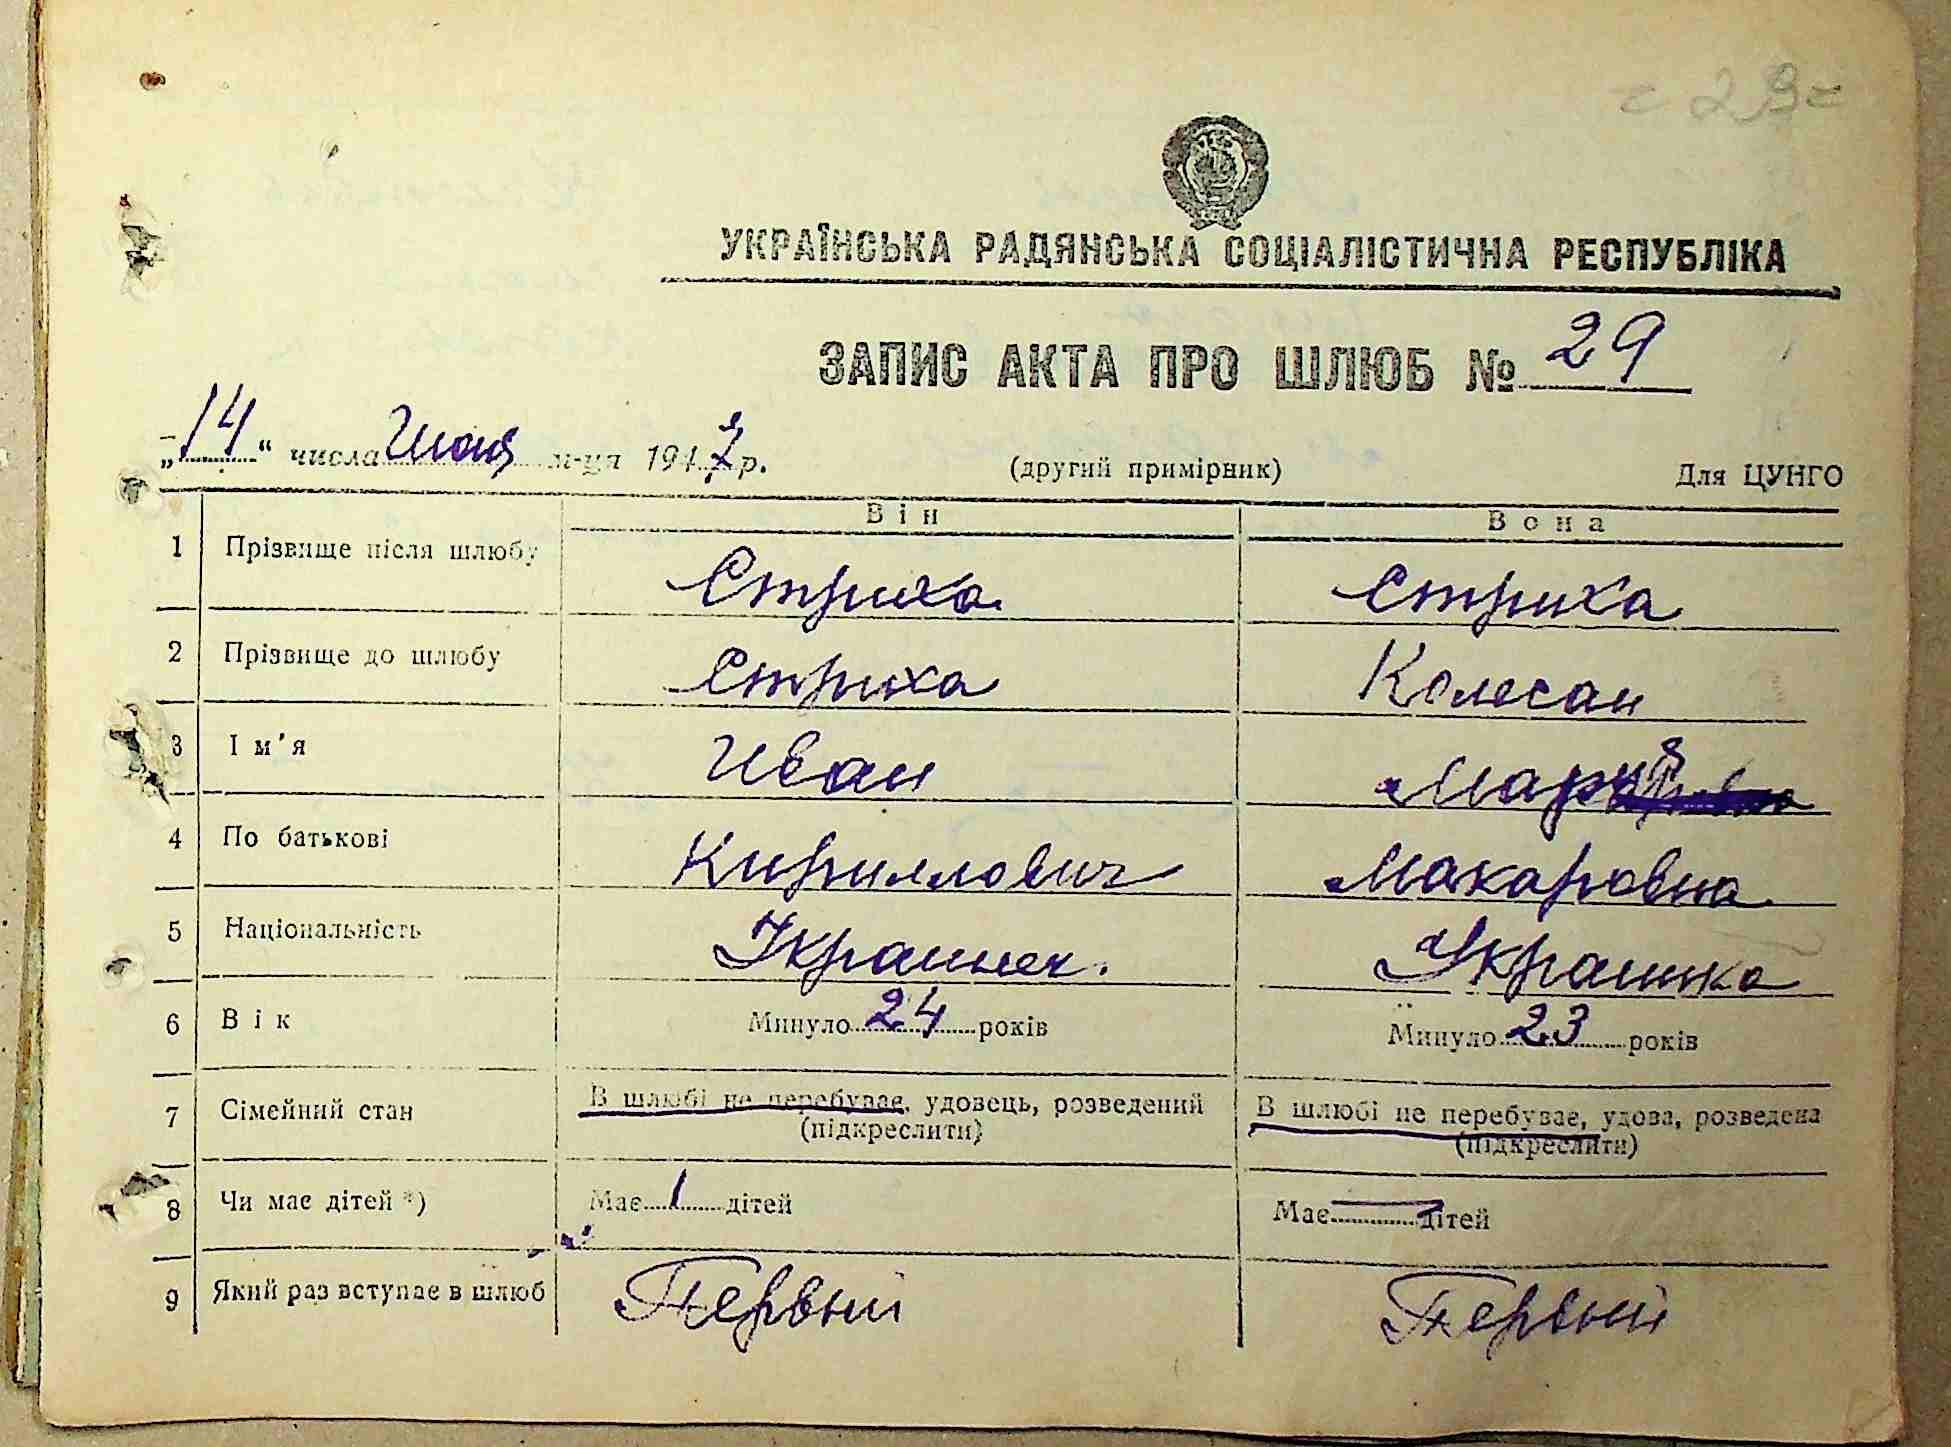 29
УКРАЇНСЬКА РАДЯНСЬКА СОЦІАЛІСТИЧНА РЕСПУБЛІКА
ЗАПИС АКТА ПРО ШЛЮБ № 29
„14“ числа м-ця 1947 р. (другий примірник) Для ЦУНГО
Він Вона
1 Прізвище після шлюбу Стриха Стриха
2 Прізвище до шлюбу Стриха Колесан
3 Ім'я Иван Мария
4 По батькові Кириллович Макаровна
5 Національність Украинец. Украинка
6 Вік Минуло 24 років Минуло 23 років
7 Сімейний стан В шлюбі не перебуває, удовець, розведений В шлюбі не перебуває, удова, розведена
(підкреслити) (підкреслити)
8 Чи має дітей *) Має 1 дітей Має — дітей
9 Який раз вступає в шлюб Первый Первый